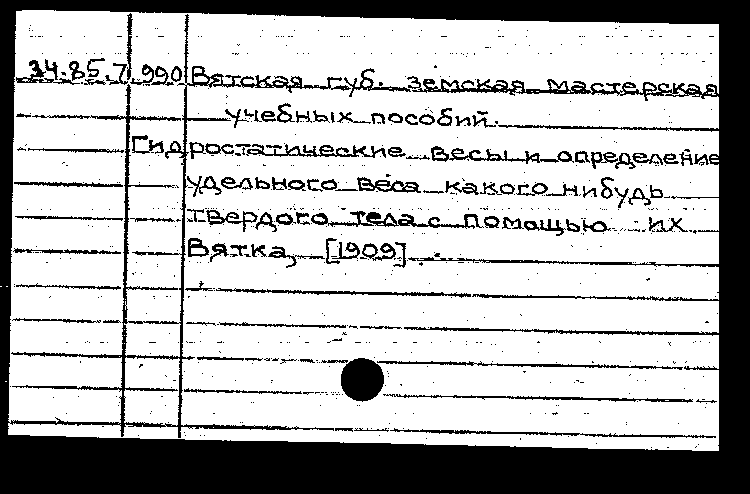 34.85.7 990 Вятская губ. земская мастерская
учебных пособий.
Гидростатические весы и определение
удельного веса какого нибудь
твердого тела с помощью их
Вятка, [1909]